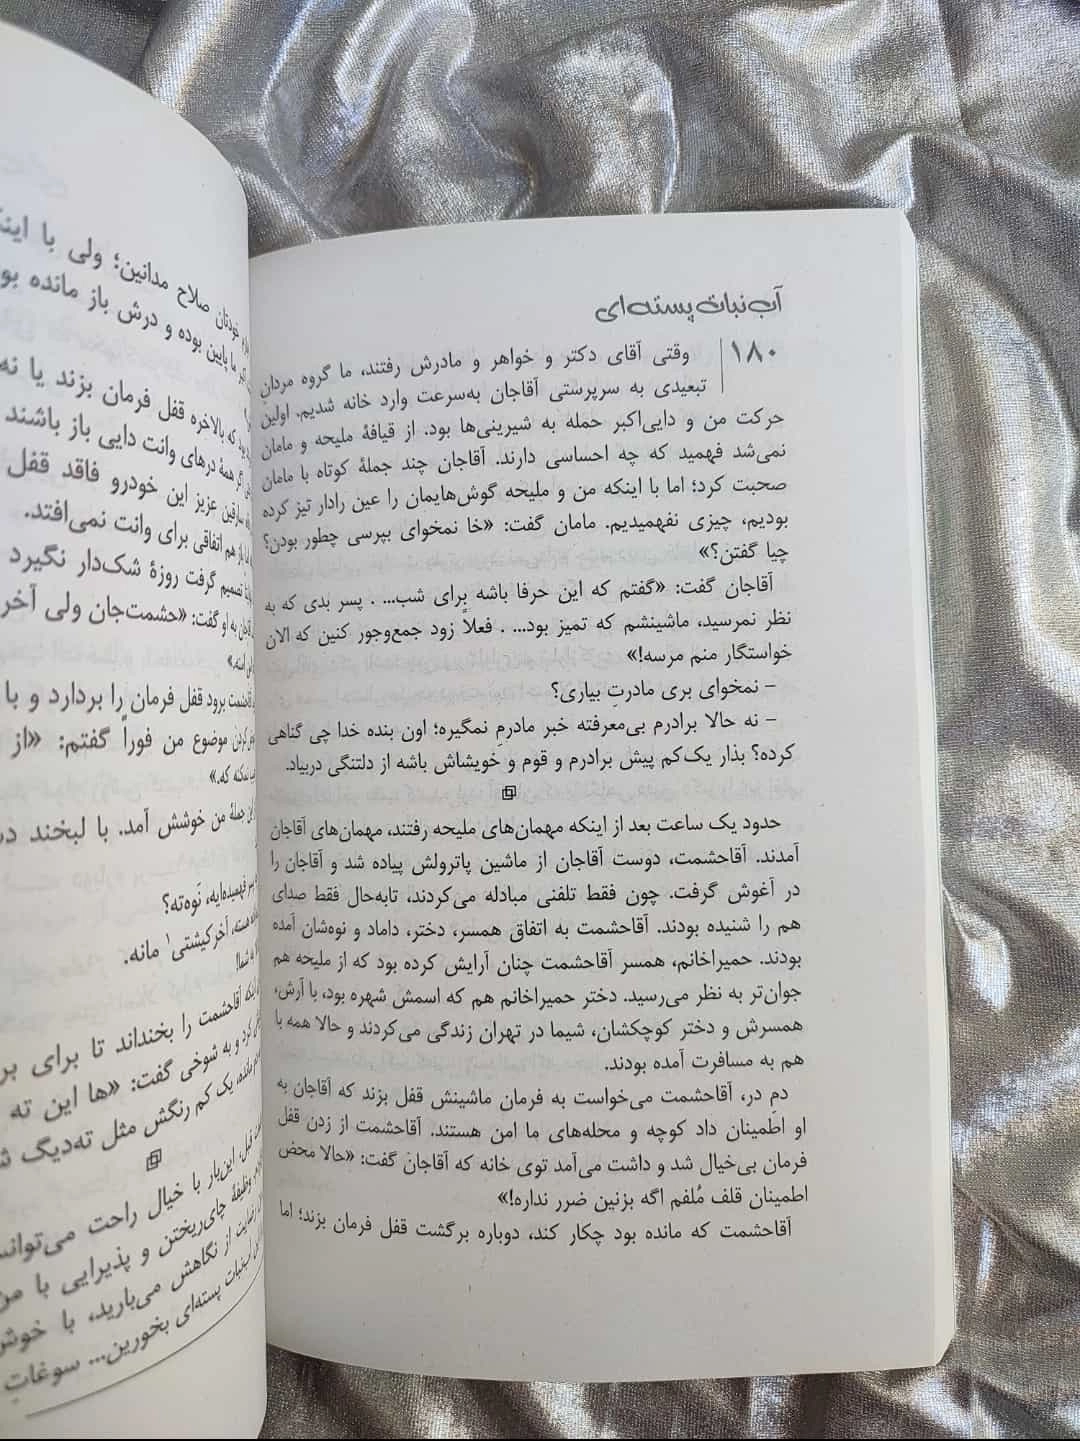 آب‌نبات پسته‌ای
۱۸۰
وقتی آقای دکتر و خواهر و مادرش رفتند، ما گروه مردانِ
تبعیدی به سرپرستی آقاجان به‌سرعت وارد خانه شدیم. اولین
حرکت من و دایی‌اکبر حمله به شیرینی‌ها بود. از قیافهٔ ملیحه و مامان
نمی‌شد فهمید که چه احساسی دارند. آقاجان چند جملهٔ کوتاه با مامان
صحبت کرد؛ اما با اینکه من و ملیحه گوش‌هایمان را عین رادار تیز کرده
بودیم، چیزی نفهمیدیم. مامان گفت: «خا نمخوای بپرسی چطور بودن؟
چیا گفتن؟»
آقاجان گفت: «گفتم که این حرفا باشه برای شب... . پسر بدی که به
نظر نمرسید، ماشینشم که تمیز بود... . فعلاً زود جمع‌وجور کنین که الان
خواستگار منم مرسه!»
– نمخوای بری مادرتِ بیاری؟
– نه حالا برادرم بی‌معرفته خبر مادرمِ نمگیره؛ اون بنده خدا چی گناهی
کرده؟ بذار یک‌کم پیش برادرم و قوم و خویشاش باشه از دلتنگی دربیاد.
حدود یک ساعت بعد از اینکه مهمان‌های ملیحه رفتند، مهمان‌های آقاجان
آمدند. آقاحشمت، دوست آقاجان از ماشین پاترولش پیاده شد و آقاجان را
در آغوش گرفت. چون فقط تلفنی مبادله می‌کردند، تابه‌حال فقط صدای
هم را شنیده بودند. آقاحشمت به اتفاق همسر، دختر، داماد و نوه‌شان آمده
بودند. حمیراخانم، همسر آقاحشمت چنان آرایش کرده بود که از ملیحه هم
جوان‌تر به نظر می‌رسید. دختر حمیراخانم هم که اسمش شهره بود، با آرش،
همسرش و دختر کوچکشان، شیما در تهران زندگی می‌کردند و حالا همه با
هم به مسافرت آمده بودند.
دمِ در، آقاحشمت می‌خواست به فرمان ماشینش قفل بزند که آقاجان به
او اطمینان داد کوچه و محله‌های ما امن هستند. آقاحشمت از زدن قفل
فرمان بی‌خیال شد و داشت می‌آمد توی خانه که آقاجان گفت: «حالا محض
اطمینان قلف مُلفم اگه بزنین ضرر نداره!»
آقاحشمت که مانده بود چکار کند، دوباره برگشت قفل فرمان بزند؛ اما
خودتان صلاح مدانین؛ ولی با
ما پایین بوده و درش باز مانده
که بالاخره قفل فرمان بزند یا نه
همهٔ درهای وانت دایی باز باشند
سارقین عزیز این خودرو فاقد قفل
هم اتفاقی برای وانت نمی‌افتد.
تصمیم گرفت روزهٔ شک‌دار نگیرد
به او گفت: «حشمت‌جان ولی آخر
برود قفل فرمان را بردارد و با
موضوع من فوراً گفتم: «از
جملهٔ من خوشش آمد. با لبخند
فهمیده‌ایه، نَوه‌ته؟
هسته، آخرکیشتی۱ مانه.
آقاحشمت را بخنداند تا برای
و به شوخی گفت: «ها این ته
یک کم رنگش مثل ته‌دیگ
این‌بار با خیال راحت
چای‌ریختن و پذیرایی با
رضایت از نگاهش می‌بارید، با
پسته‌ای بخورین... سوغات